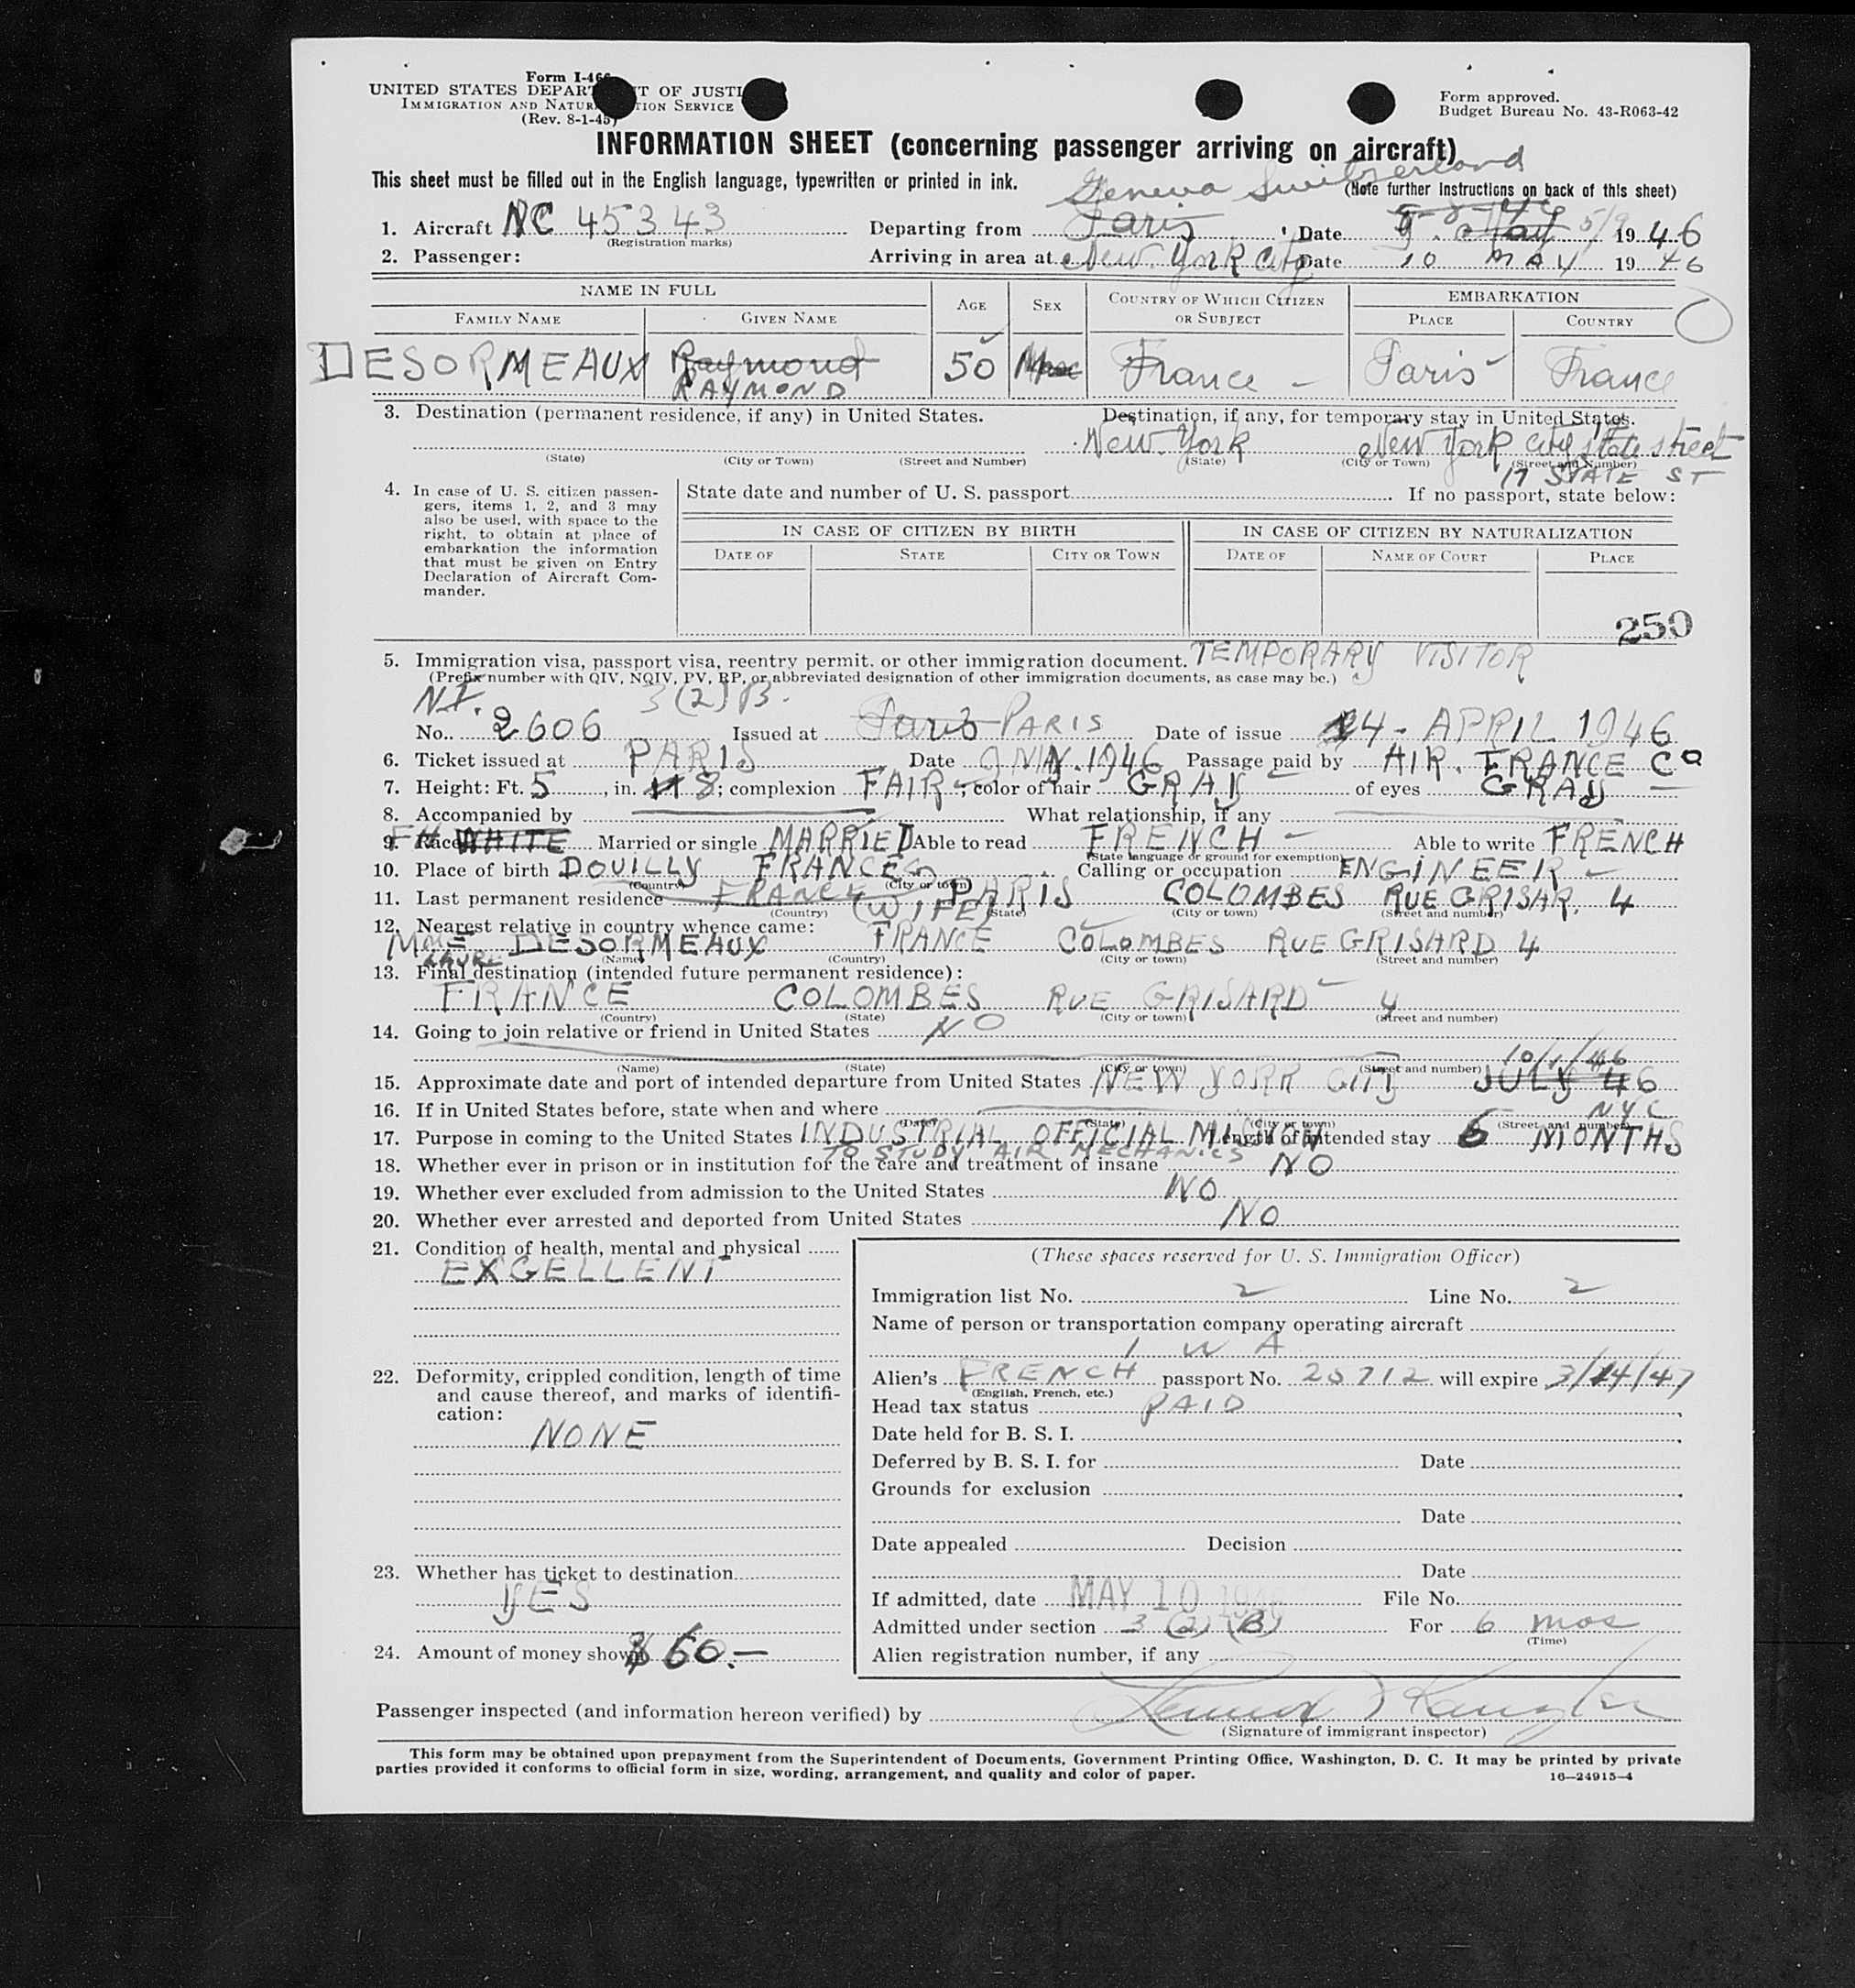 Form I-466
UNITED STATES DEPARTMENT OF JUSTICE
IMMIGRATION AND NATURALIZATION SERVICE
(Rev. 8-1-45)
Form approved.
Budget Bureau No. 43-R063-42
INFORMATION SHEET (concerning passenger arriving on aircraft)
This sheet must be filled out in the English language, typewritten or printed in ink.
(Note further instructions on back of this sheet)
Geneva Switzerland
1. Aircraft NC 45343 Departing from Paris Date 9. May 5/9 1946
(Registration marks)
2. Passenger: Arriving in area at New. York City Date 10 MAY 1946
NAME IN FULL AGE SEX COUNTRY OF WHICH CITIZEN OR SUBJECT EMBARKATION
FAMILY NAME GIVEN NAME PLACE COUNTRY
DESORMEAUX Raymond 50 France - Paris - France
RAYMOND
3. Destination (permanent residence, if any) in United States. Destination, if any, for temporary stay in United States.
New. York New York City State street
(State) (City or Town) (Street and Number) (State) (City or Town) (Street and Number)
17 STATE ST
4. In case of U. S. citizen passengers, items 1, 2, and 3 may also be used, with space to the right, to obtain at place of embarkation the information that must be given on Entry Declaration of Aircraft Commander.
State date and number of U. S. passport If no passport, state below:
IN CASE OF CITIZEN BY BIRTH IN CASE OF CITIZEN BY NATURALIZATION
DATE OF STATE CITY OR TOWN DATE OF NAME OF COURT PLACE
250
5. Immigration visa, passport visa, reentry permit, or other immigration document. TEMPORARY VISITOR
(Prefix number with QIV, NQIV, PV, RP, or abbreviated designation of other immigration documents, as case may be.)
N.I. 3(2)B.
No. 2606 Issued at Paris PARIS Date of issue 24 - APRIL 1946
6. Ticket issued at PARIS Date 9 MAY. 1946 Passage paid by AIR. FRANCE Co
7. Height: Ft. 5, in. 8; complexion FAIR -; color of hair GRAY of eyes GRAY
8. Accompanied by What relationship, if any
9. Race WHITE Married or single MARRIED Able to read FRENCH - Able to write FRENCH
(State language or ground for exemption)
10. Place of birth DOUILLY FRANCE Calling or occupation ENGINEER -
(Country) (City or town)
11. Last permanent residence FRANCE PARIS COLOMBES RUE GRISAR. 4
(Country) (State) (City or town) (Street and number)
(WIFE)
12. Nearest relative in country whence came:
MME DESORMEAUX FRANCE COLOMBES RUE GRISARD 4
(Name) (Country) (City or town) (Street and number)
13. Final destination (intended future permanent residence):
FRANCE COLOMBES RUE GRISARD - 4
(Country) (State) (City or town) (Street and number)
14. Going to join relative or friend in United States NO
(Name) (State) (City or town) (Street and number)
10/1/46
15. Approximate date and port of intended departure from United States NEW YORK CITY JULY 46
NYC
16. If in United States before, state when and where
(Date) (State) (City or town) (Street and number)
17. Purpose in coming to the United States INDUSTRIAL OFFICIAL MISSION Length of intended stay 6 MONTHS
TO STUDY AIR MECHANICS
18. Whether ever in prison or in institution for the care and treatment of insane NO
19. Whether ever excluded from admission to the United States NO
20. Whether ever arrested and deported from United States NO
21. Condition of health, mental and physical
EXCELLENT
22. Deformity, crippled condition, length of time and cause thereof, and marks of identification:
NONE
23. Whether has ticket to destination
YES
24. Amount of money shown $ 60.—
(These spaces reserved for U. S. Immigration Officer)
Immigration list No. 2 Line No. 2
Name of person or transportation company operating aircraft
T W A
Alien's FRENCH passport No. 25712 will expire 3/14/47
(English, French, etc.)
Head tax status PAID
Date held for B. S. I.
Deferred by B. S. I. for Date
Grounds for exclusion
Date
Date appealed Decision
Date
If admitted, date MAY 10 1946 File No.
Admitted under section 3 (2) (B) For 6 mos
(Time)
Alien registration number, if any
Passenger inspected (and information hereon verified) by
(Signature of immigrant inspector)
This form may be obtained upon prepayment from the Superintendent of Documents, Government Printing Office, Washington, D. C. It may be printed by private
parties provided it conforms to official form in size, wording, arrangement, and quality and color of paper.
16—24915-4